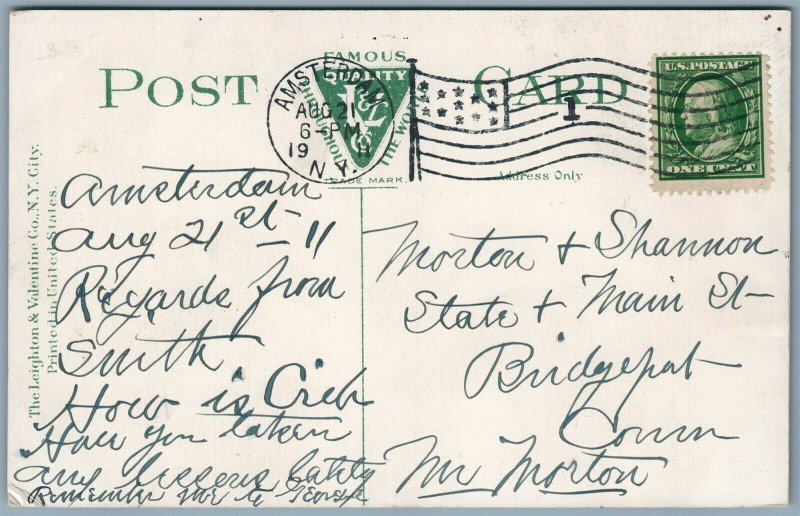 POST CARD
FAMOUS
QUALITY
THROUGHOUT THE WORLD
L & V Co
TRADE MARK
AMSTERDAM
AUG 21
6-PM
1911
N.Y.
1
U.S. POSTAGE
ONE CENT
Address Only
The Leighton & Valentine Co., N.Y. City.
Printed in United States.
Amsterdam
Aug 21st - 11
Regards from
Smith
How is Crib
Have you taken
any lessons lately
Remember me to George
Morton & Shannon
State & Main St-
Bridgeport
Conn
Mr Morton